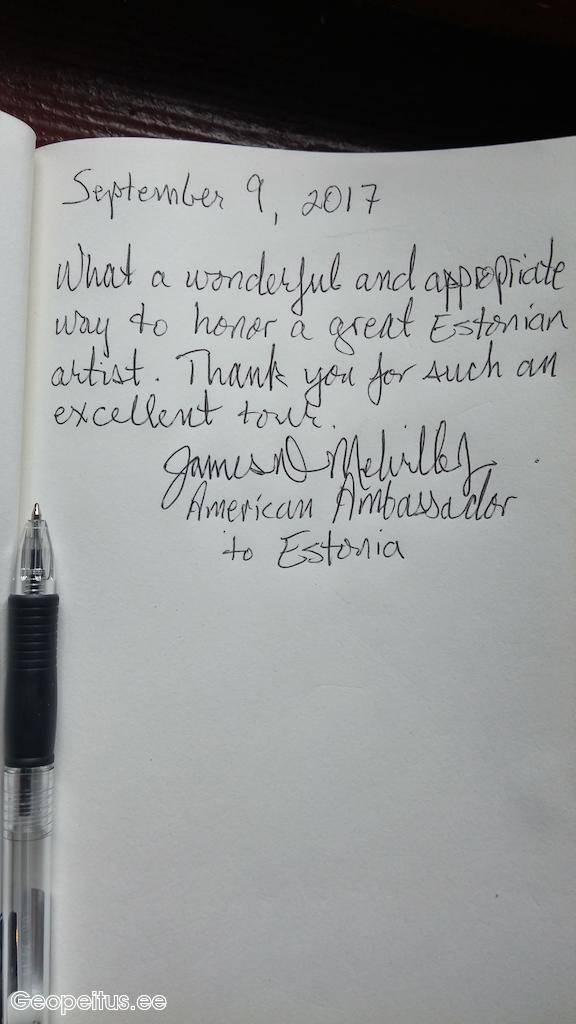 September 9, 2017
What a wonderful and appropriate
way to honor a great Estonian
artist. Thank you for such an
excellent tour.
James D Melville Jr.
American Ambassador
to Estonia
Geopeitus.ee